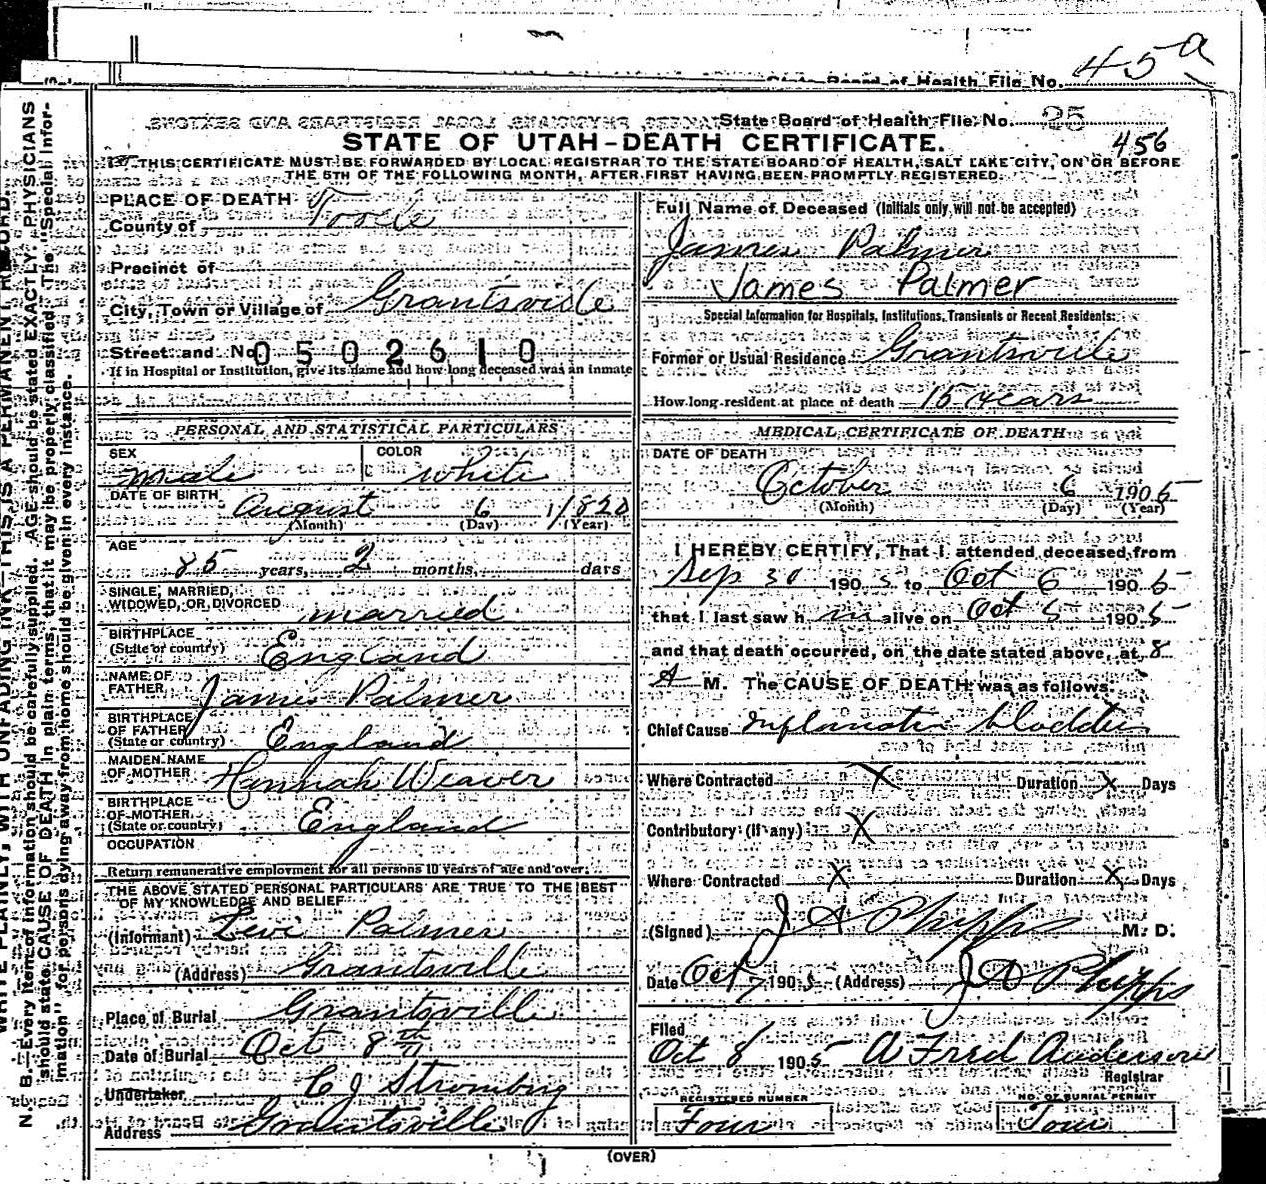 State Board of Health File No. 45a
State Board of Health File No. 25
STATE OF UTAH—DEATH CERTIFICATE. 456
THIS CERTIFICATE MUST BE FORWARDED BY LOCAL REGISTRAR TO THE STATE BOARD OF HEALTH, SALT LAKE CITY, ON OR BEFORE
THE 5TH OF THE FOLLOWING MONTH, AFTER FIRST HAVING BEEN PROMPTLY REGISTERED.
PLACE OF DEATH
County of Tooele
Precinct of
City, Town or Village of Grantsville
Street and No. 0502610
If in Hospital or Institution, give its name and how long deceased was an inmate
PERSONAL AND STATISTICAL PARTICULARS
SEX Male COLOR White
DATE OF BIRTH August 6 1820
(Month) (Day) (Year)
AGE 85 years, 2 months, days
SINGLE, MARRIED,
WIDOWED, OR DIVORCED married
BIRTHPLACE
(State or country) England
NAME OF
FATHER James Palmer
BIRTHPLACE
OF FATHER
(State or country) England
MAIDEN NAME
OF MOTHER Hannah Weaver
BIRTHPLACE
OF MOTHER
(State or country) England
OCCUPATION
Return remunerative employment for all persons 10 years of age and over.
THE ABOVE STATED PERSONAL PARTICULARS ARE TRUE TO THE BEST
OF MY KNOWLEDGE AND BELIEF
(Informant) Levi Palmer
(Address) Grantsville
Place of Burial Grantsville
Date of Burial Oct 8th
Undertaker C J Stromberg
Address Grantsville
Full Name of Deceased (Initials only will not be accepted)
James Palmer
James Palmer
Special Information for Hospitals, Institutions, Transients or Recent Residents:
Former or Usual Residence Grantsville
How long resident at place of death 15 years
MEDICAL CERTIFICATE OF DEATH
DATE OF DEATH
October 6 1905
(Month) (Day) (Year)
I HEREBY CERTIFY, That I attended deceased from
Sep 30 1905 to Oct 6 1905
that I last saw h im alive on Oct 5 1905
and that death occurred, on the date stated above, at 8
A M. The CAUSE OF DEATH was as follows.
Chief Cause Inflamation bladder
Where Contracted X Duration X Days
Contributory (if any) X
Where Contracted X Duration X Days
(Signed) J A Phipps M. D.
Date Oct 7 1905 (Address) J A Phipps
Filed
Oct 8 1905 A Fred Anderson
Registrar
REGISTERED NUMBER
Four
NO. OF BURIAL PERMIT
Four
(OVER)
N. B.—Every item of information should be carefully supplied. AGE should be stated EXACTLY. PHYSICIANS
should state CAUSE OF DEATH in plain terms, that it may be properly classified. The "Special Infor-
mation" for persons dying away from home should be given in every instance.